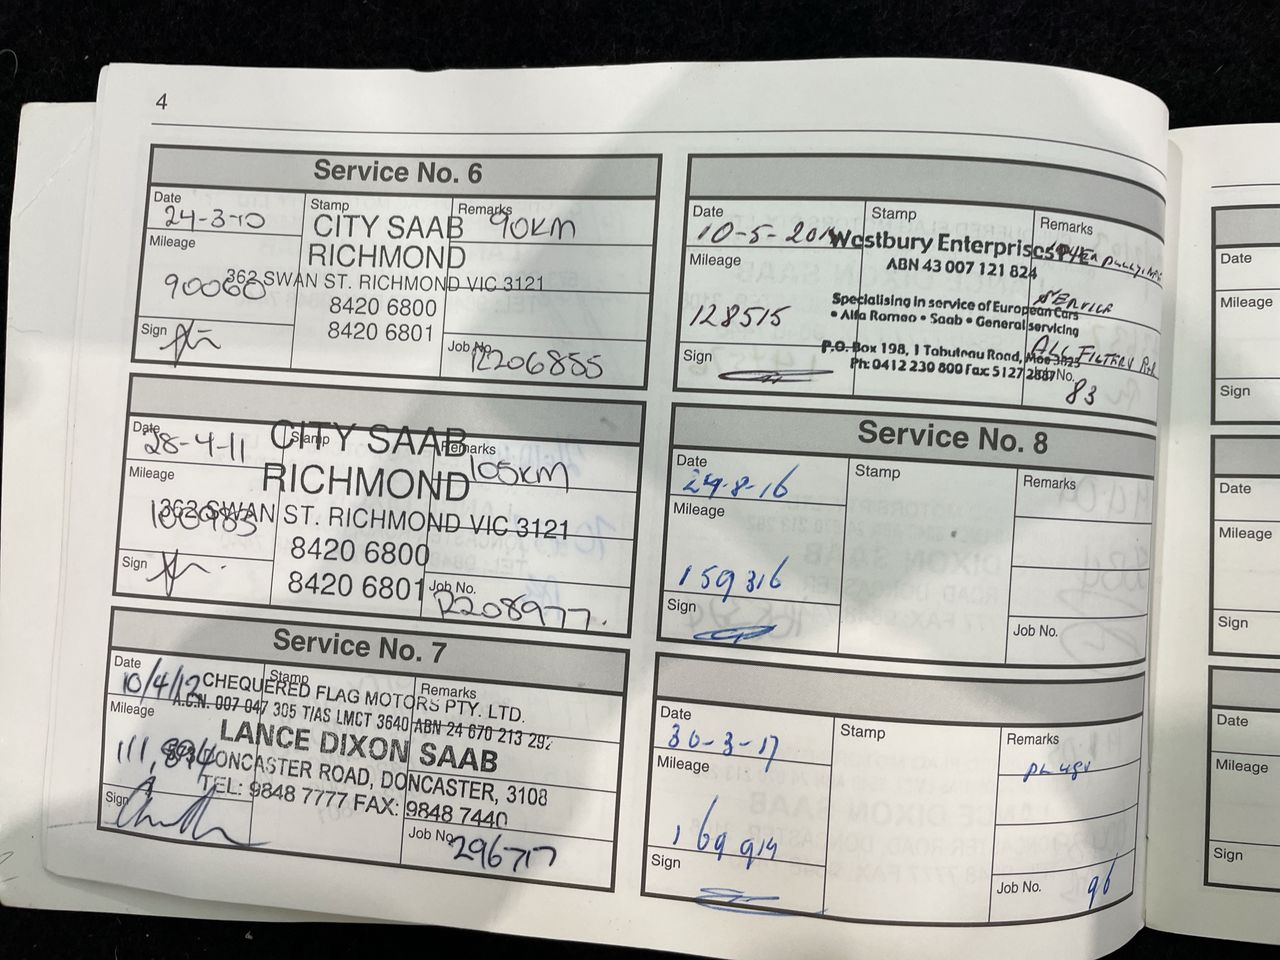 4
Service No. 6
Date
24-3-10
Stamp
CITY SAAB
RICHMOND
362 SWAN ST. RICHMOND VIC 3121
8420 6800
8420 6801
Remarks
90KM
Mileage
90060
Sign
Job No.
R206855
Date
28-4-11
Stamp
CITY SAAB
RICHMOND
362 SWAN ST. RICHMOND VIC 3121
8420 6800
8420 6801
Remarks
105KM
Mileage
Sign
Job No.
R208977.
Service No. 7
Date
10/4/12
Stamp
CHEQUERED FLAG MOTORS PTY. LTD.
A.C.N. 007 047 305 T/AS LMCT 3640 ABN 24 670 213 292
LANCE DIXON SAAB
DONCASTER ROAD, DONCASTER, 3108
TEL: 9848 7777 FAX: 9848 7440
Remarks
Mileage
111,894
Sign
Job No.
296717
Date
10-5-201
Stamp
Westbury Enterprises
ABN 43 007 121 824
Specialising in service of European Cars
• Alfa Romeo • Saab • General servicing
P.O. Box 198, 1 Tabuteau Road, Moe 3825
Ph: 0412 230 800 Fax: 5127 2887
Remarks
SERVICE
ALL FILTERS
Mileage
128515
Sign
Job No.
83
Service No. 8
Date
29-8-16
Stamp
Remarks
Mileage
159316
Sign
Job No.
Date
30-3-17
Stamp
Remarks
PLUGS
Mileage
169914
Sign
Job No.
96
Date
Mileage
Sign
Date
Mileage
Sign
Date
Mileage
Sign